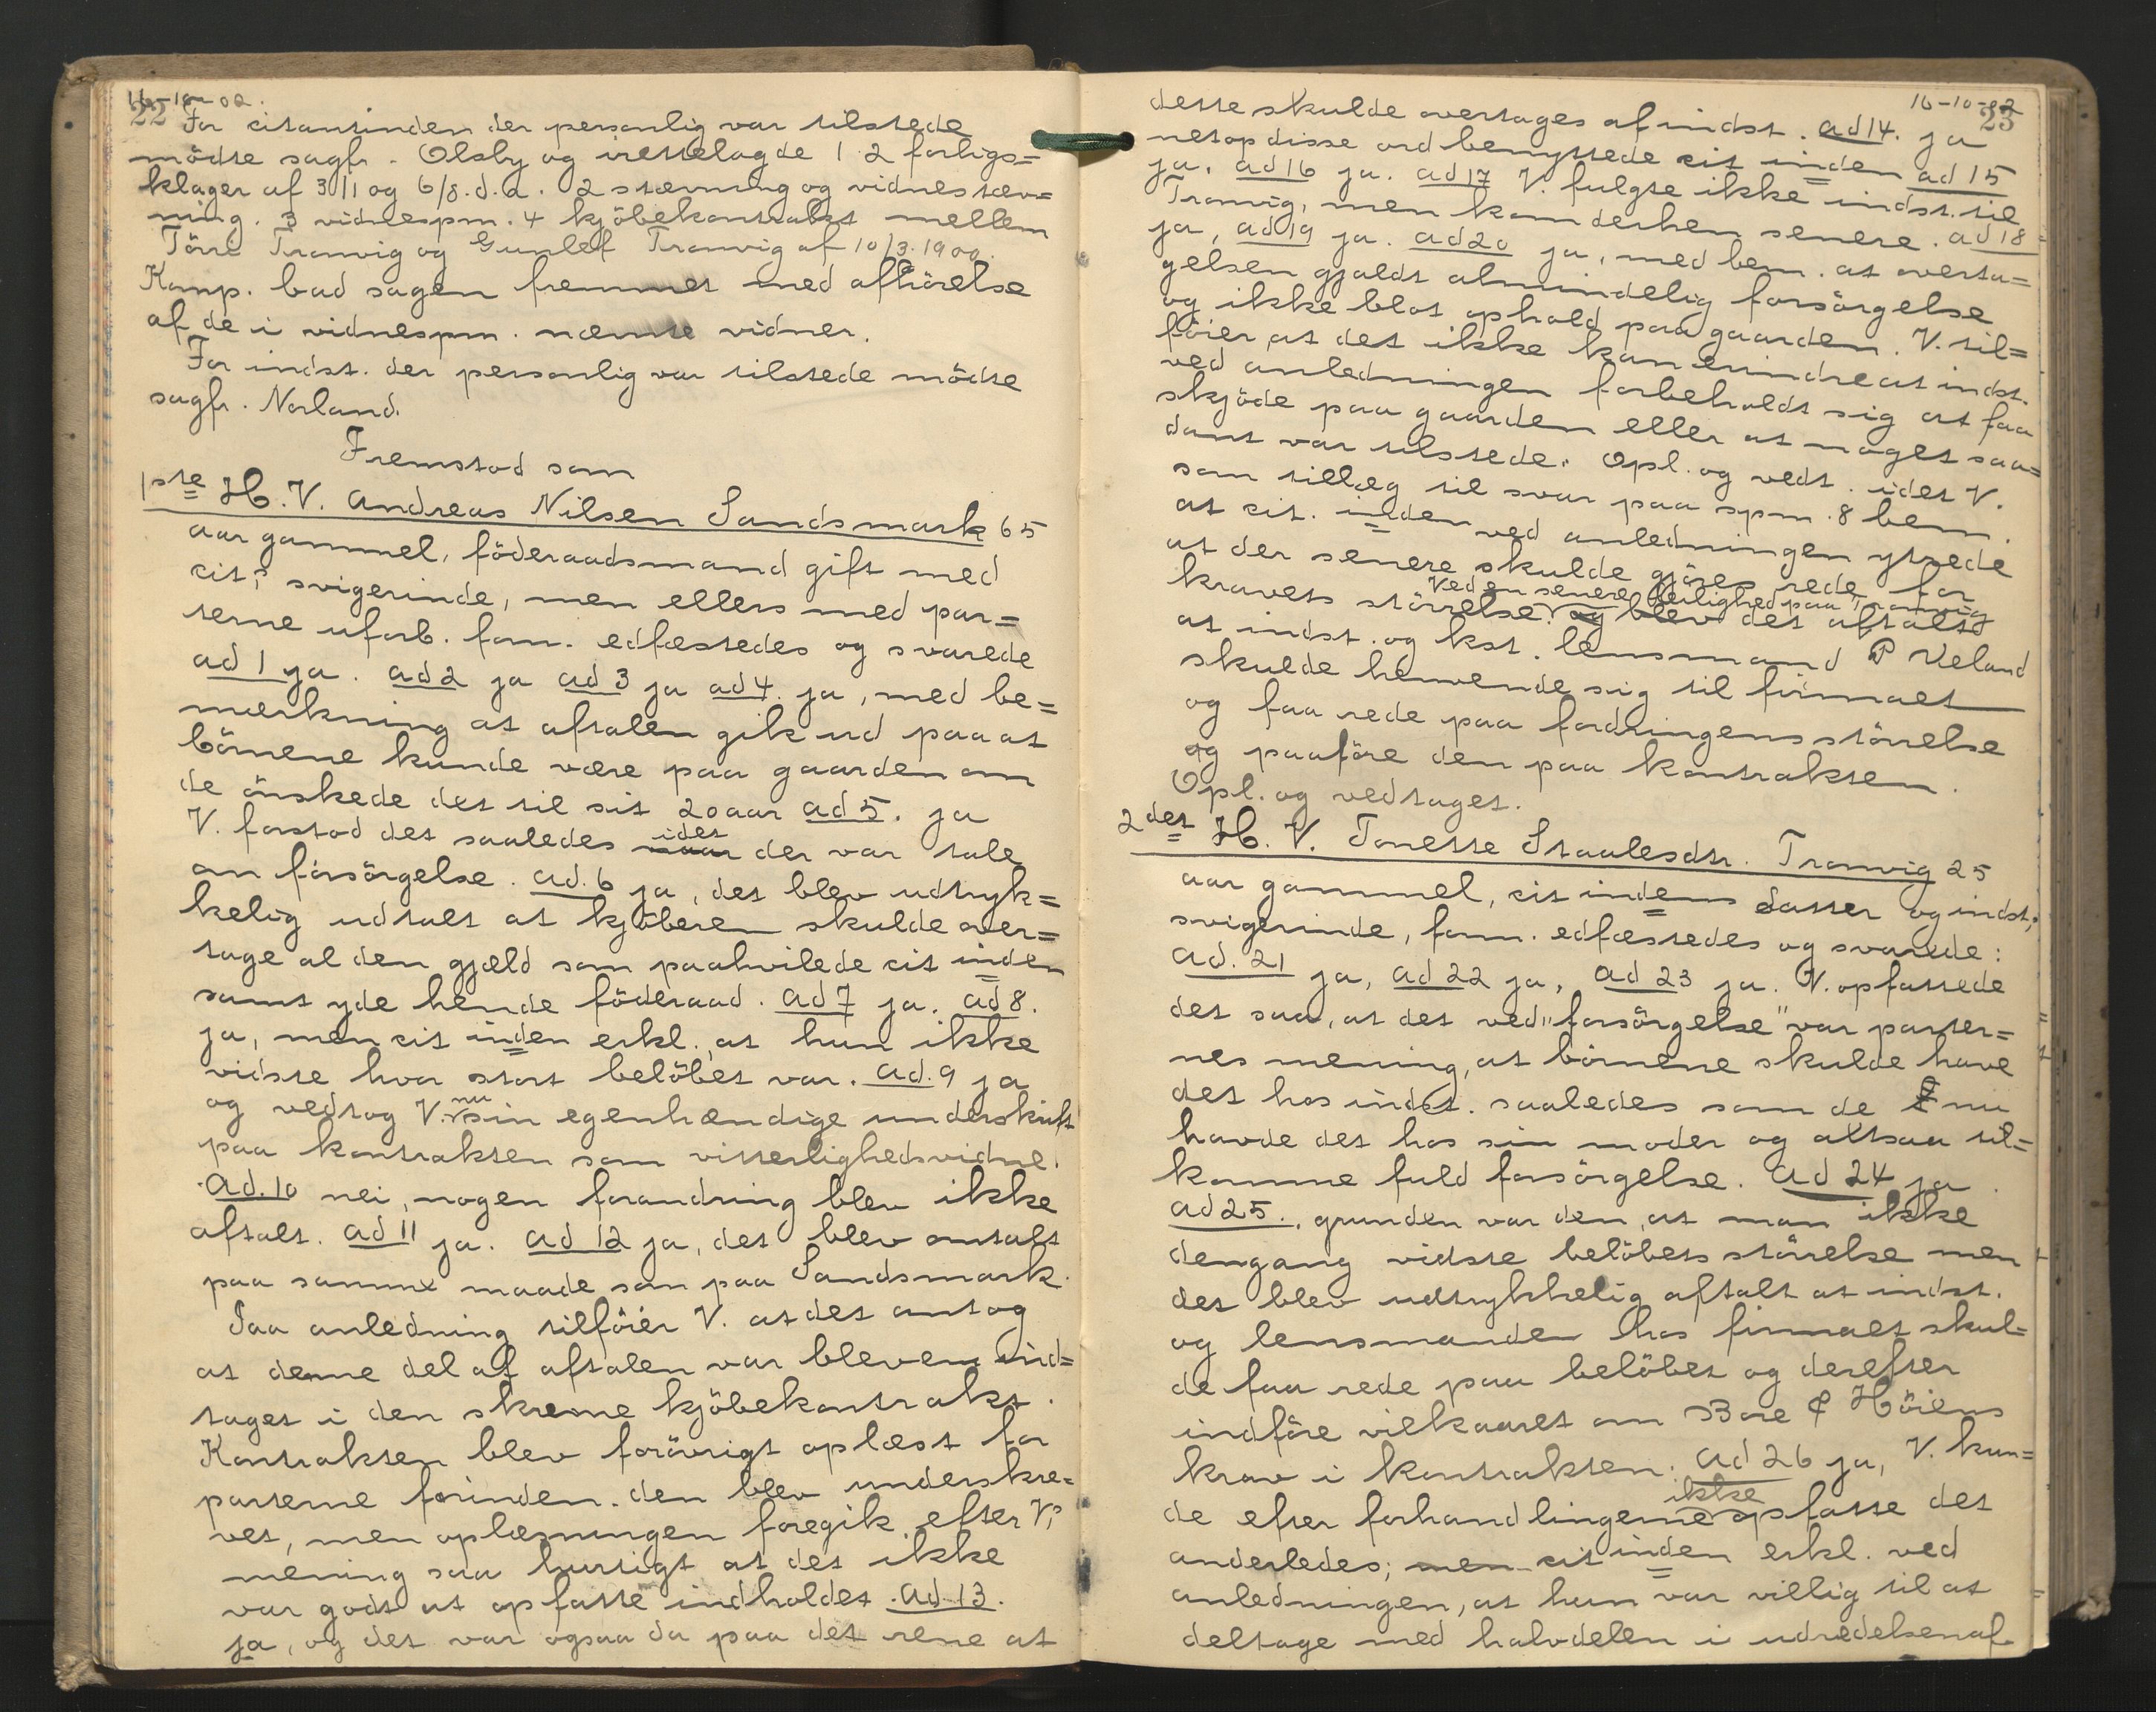 16-10-02.
22 For citantinden der personlig var tilstede
mödte sagfr. Olsby og irettelagde 1 2 forligs=
klager af 3/1 og 6/8. d. a. 2 stævning og vidnestæv=
ning. 3 vidnespm. 4 kjöbekontrakt mellem
Törre Tronvig og Gunlef Tronvig af 10/3. 1900.
Komp. bad sagen fremmet med afhörelse
af de i vidnespm. nævnte vidner.
For indst. der personlig var tilstede mödte
sagfr. Norland.
Fremstod som
1ste H. V. Andreas Nilsen Sandsmark 65
aar gammel, föderaadsmand gift med
cit.s svigerinde, men ellers med par=
terne uforb. fom. edfæstedes og svarede
ad 1 ja. ad 2 ja ad 3 ja ad 4. ja, med be=
mærkning at aftalen gik ud paa at
börnene kunde være paa gaarden om
de önskede det til sit 20 aar ad 5. ja
V. forstod det saaledes idet naar der var tale
om forsörgelse. ad. 6 ja, det blev udtryk=
kelig udtalt at kjöberen skulde over=
tage al den gjæld som paahvilede cit inden
samt yde hende föderaad. ad 7 ja. ad 8.
ja, men cit inden erkl. at hun ikke
vidste hvor stort belöbet var. ad. 9 ja
og vedtog V. nu sin egenhændige underskrift
paa kontrakten som vitterlighedsvidne.
ad. 10 nei, nogen forandring blev ikke
aftalt. ad 11 ja. ad 12 ja, det blev omtalt
paa samme maade som paa Sandsmark.
Paa anledning tilföier V. at det antog
at denne del af aftalen var bleven ind=
taget i den skrevne kjöbekontrakt.
Kontrakten blev forövrigt oplæst for
parterne forinden den blev underskre=
vet, men oplæsningen foregik efter V.s
mening saa hurtigt at det ikke
var godt at opfatte indholdet. ad. 13.
ja, og det var ogsaa da paa det rene at
16-10-02
23
dette skulde overtages af indst. ad 14. ja
netop disse ord benyttede cit inden ad 15
ja. ad 16 ja. ad 17 V. fulgte ikke indst. til
Tronvig, men kom derhen senere. ad 18
ja, ad 19 ja. ad 20 ja, med bem. at overta=
gelsen gjaldt almindelig forsörgelse
og ikke blot ophold paa gaarden. V. til=
föier at det ikke kan erindre at indst.
ved anledningen forbeholdt sig at faa
skjöde paa gaarden eller at noget saa=
dant var tilstede. Opl. og vedt. idet V.
som tillæg til svar paa spm. 8 bem.
at cit. inden ved anledningen ytrede
at der senere skulde gjöres rede for
Ved en senere leilighed paa Tronvig
kravets störrelse. og blev det aftalt
at indst. og kst. lensmand P Ueland
skulde henvende sig til firmaet
og faa rede paa fordringens störrelse
og paaföre den paa kontrakten.
Opl. og vedtaget.
2det H. V. Tonette Staalesdtr. Tronvig 25
aar gammel, cit indens datter og indst.s
svigerinde, fom. edfæstedes og svarede:
ad. 21 ja, ad 22 ja, ad 23 ja. V. opfattede
det saa, at det ved "forsörgelse" var parter=
nes mening, at börnene skulde have
det hos indst. saaledes som de nu
havde det hos sin moder og altsaa til=
komme fuld forsörgelse. ad 24 ja.
ad 25., grunden var den, at man ikke
dengang vidste belöbets störrelse men
det blev udtrykkelig aftalt at indst.
og lensmanden hos firmaet skul=
de faa rede paa belöbet og derefter
indföre vilkaaret om Bore & Höiens
krav i kontrakten. ad 26 ja, V. kun=
de efter forhandlingerne ikke opfatte det
anderledes; men cit inden erkl. ved
anledningen, at hun var villig til at
deltage med halvdelen i udredelsen af